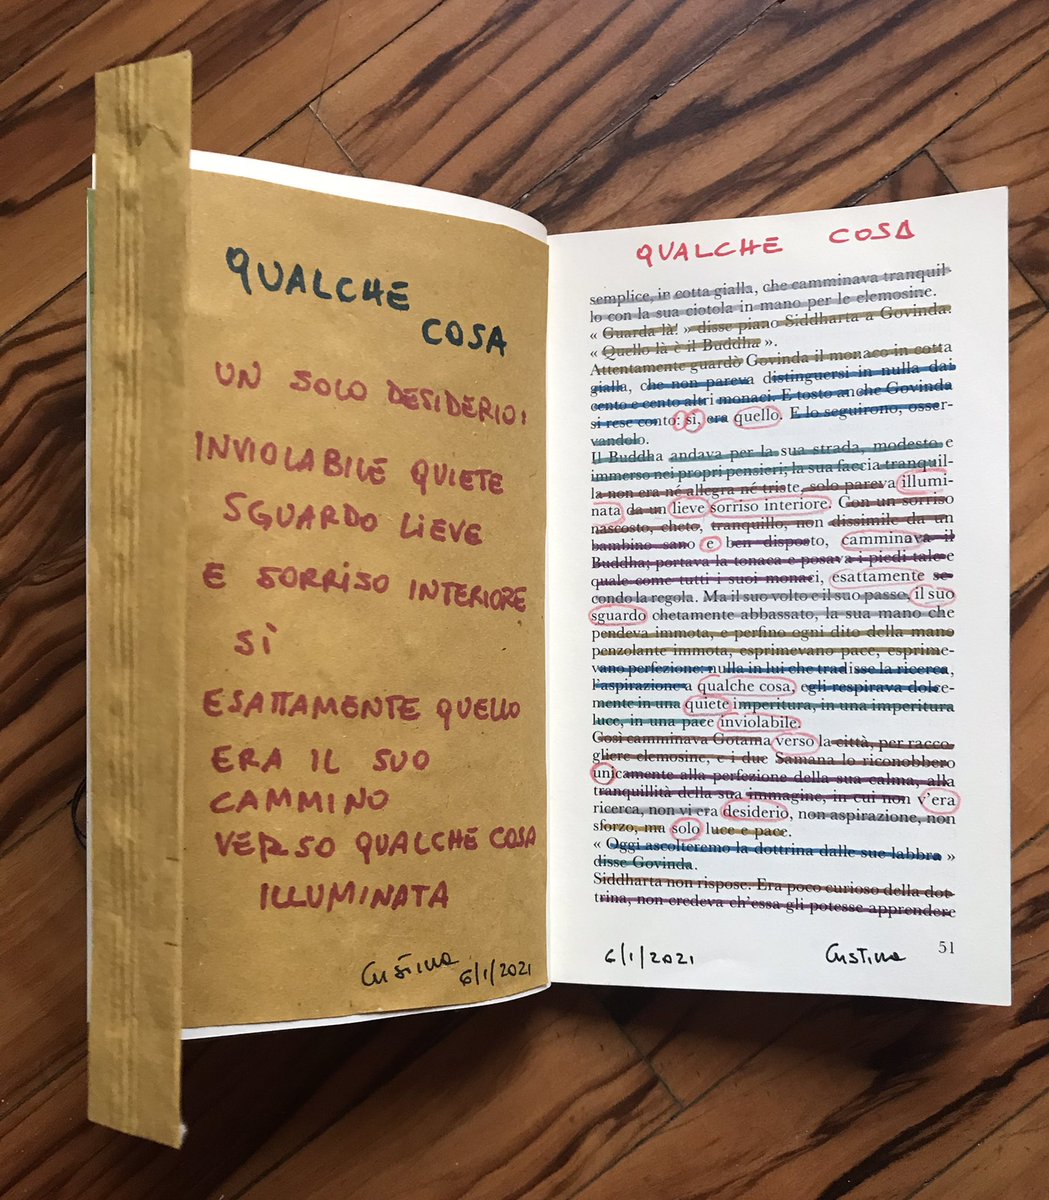 QUALCHE
COSA
UN SOLO DESIDERIO:
INVIOLABILE QUIETE
SGUARDO LIEVE
E SORRISO INTERIORE
SÌ
ESATTAMENTE QUELLO
ERA IL SUO
CAMMINO
VERSO QUALCHE COSA
ILLUMINATA
Cristina
6/1/2021
QUALCHE COSA
semplice, in cotta gialla, che camminava tranquil-
lo con la sua ciotola in mano per le elemosine.
« Guarda là! » disse piano Siddharta a Govinda.
« Quello là è il Buddha ».
Attentamente guardò Govinda il monaco in cotta
gialla, che non pareva distinguersi in nulla dai
cento e cento altri monaci. E tosto anche Govinda
si rese conto: sì, era quello. E lo seguirono, osser-
vandolo.
Il Buddha andava per la sua strada, modesto e
immerso nei propri pensieri; la sua faccia tranquil-
la non era né allegra né triste, solo pareva illumi-
nata da un lieve sorriso interiore. Con un sorriso
nascosto, cheto, tranquillo, non dissimile da un
bambino sano e ben disposto, camminava il
Buddha; portava la tonaca e posava i piedi tale e
quale come tutti i suoi monaci, esattamente se-
condo la regola. Ma il suo volto e il suo passo, il suo
sguardo chetamente abbassato, la sua mano che
pendeva immota, e perfino ogni dito della mano
penzolante immota, esprimevano pace, esprime-
vano perfezione: nulla in lui che tradisse la ricerca,
l'aspirazione a qualche cosa, egli respirava dolce-
mente in una quiete imperitura, in una imperitura
luce, in una pace inviolabile.
Così camminava Gotama verso la città, per racco-
gliere elemosine, e i due Samana lo riconobbero
unicamente alla perfezione della sua calma, alla
tranquillità della sua immagine, in cui non v'era
ricerca, non vi era desiderio, non aspirazione, non
sforzo, ma solo luce e pace.
« Oggi ascolteremo la dottrina dalle sue labbra »
disse Govinda.
Siddharta non rispose. Era poco curioso della dot-
trina, non credeva ch'essa gli potesse apprendere
51
6/1/2021
Cristina